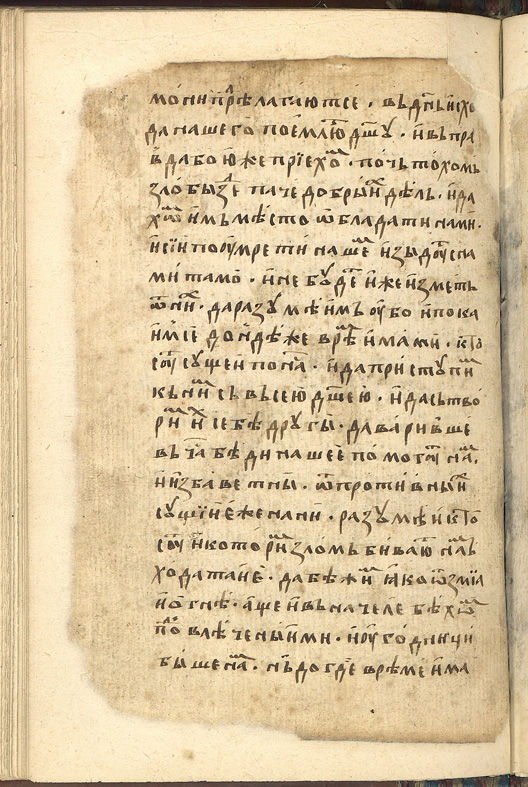 мони прѣлагаютсе · въ дн҃ь исхо
да нашего поемлюⷮ дш҃ꙋ · и въ пра
въдꙋ бо юже прїехоⷨ · почьтохомь
зло бызе паче добрыиⷯ дѣль · и да
хоⷨ имь мѣсто ѡбладати нами ·
и сїи по оумрети нашеⷨ изыдоуⷮ с на
ми тамо · и не бꙋдеⷮ иже изметь
ѿ ниⷯ · да разꙋмѣимь оубо и пока
имсе дондѣже врѣⷨ имами · кто
соуⷮ сꙋщеи по наⷭ · и да пристꙋпиⷨ
къ ниⷨ съ вьсею дш҃ею · и да сьтво
риⷨ иⷯ себѣ дрꙋгы · да варивше
въ чаⷭ бѣди нашее помогоуⷮ наⷨ ·
и избавет ны · ѿ противныиⷯ
сꙋщїи еже на ни · разꙋмѣи кто
соуⷮ и которїи зломь биваюⷮ наⷨ
ходатаие · да бѣжиⷨ ꙗко ѿ змїа
и огнѣ · аще и вьначеле бѣхоⷨ
повлѣчены ими · и оугодници
быше наⷨ · нь до гдѣ врѣме има